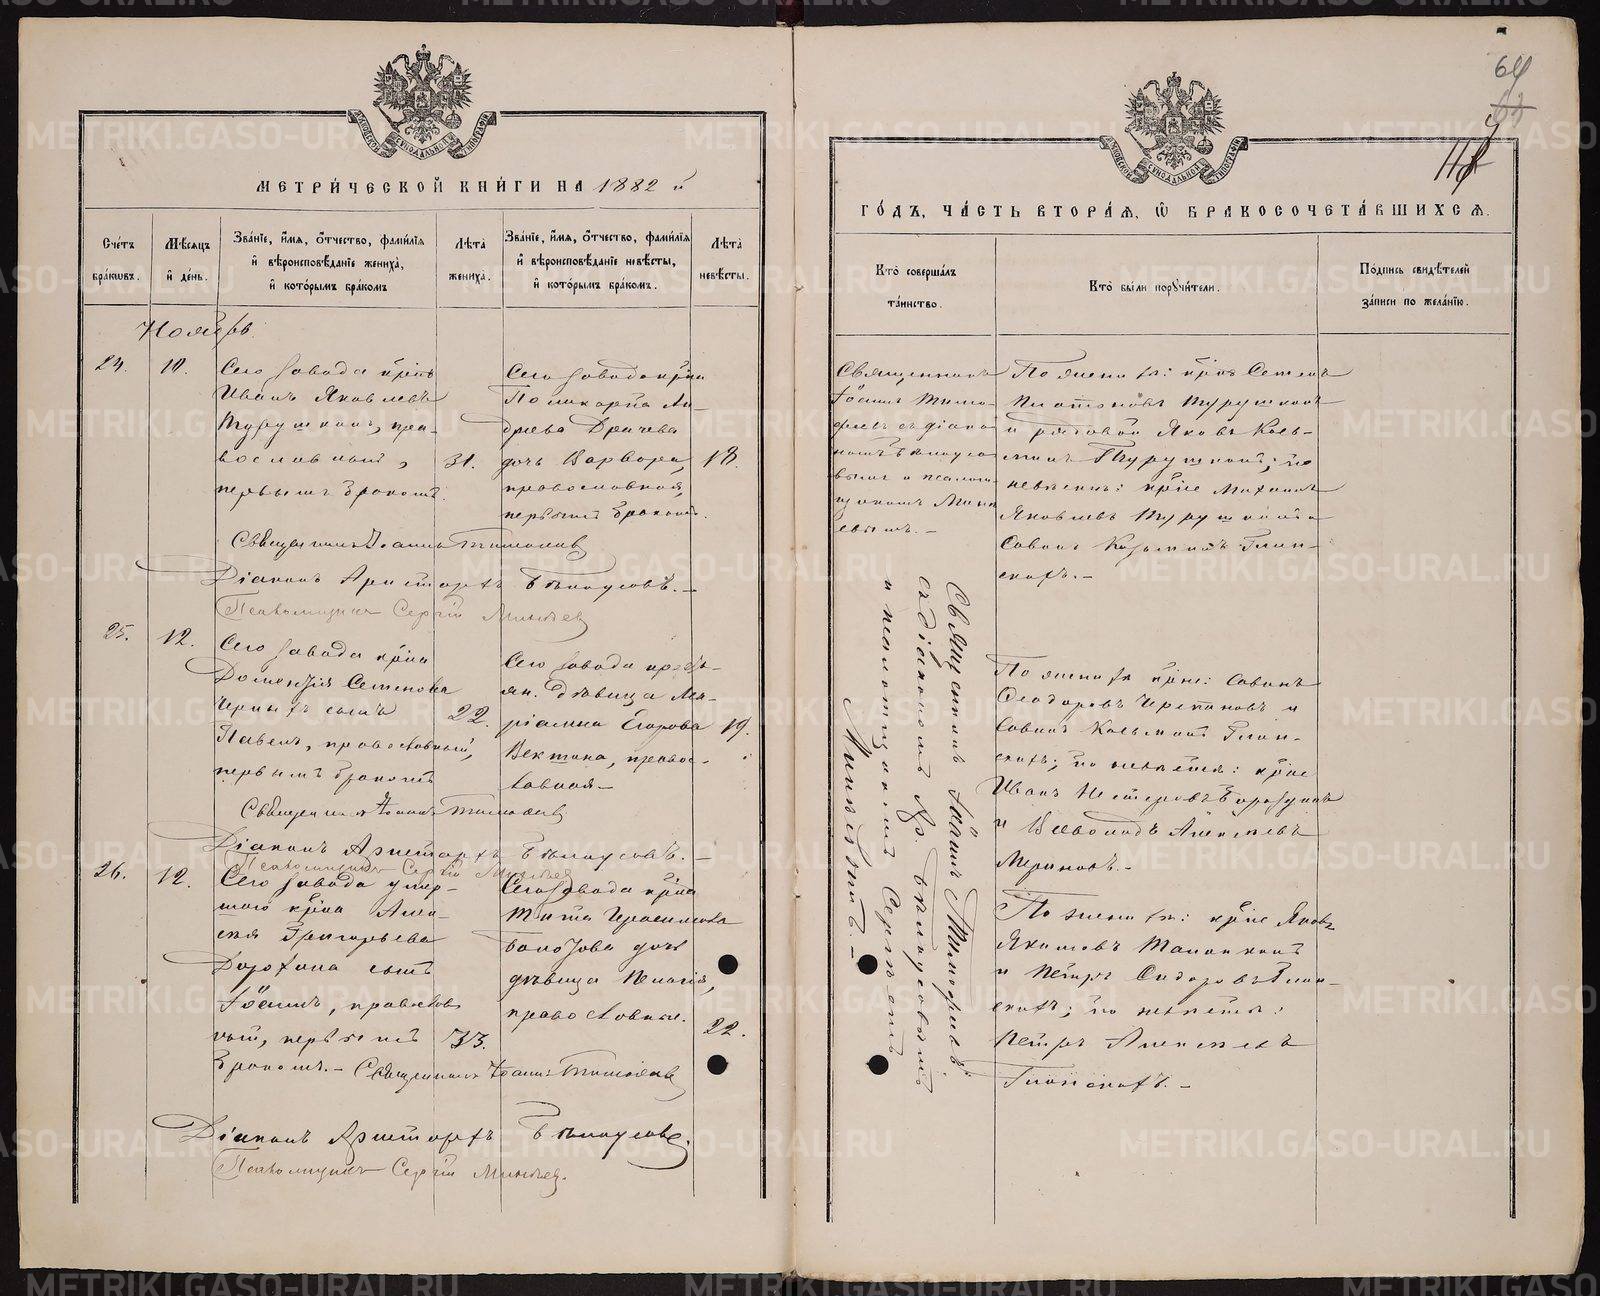 МЕТРИ́ЧЕСКОЙ КНИ́ГИ НА 1882 й
Сче́тъ бра́кωвъ.
Мѣ́сяцъ и҆ де́нь.
Зва́нїе, и҆́мя, ѻ҆́тчество, фами́лїя и҆ вѣроисповѣ́данїе жениха̀, и҆ кото́рымъ бра́комъ
Лѣ́та жениха̀.
Зва́нїе, и҆́мя, ѻ҆́тчество, фами́лїя и҆ вѣроисповѣ́данїе невѣ́сты, и҆ кото́рымъ бра́комъ.
Лѣ́та невѣ́сты.
Ноябрь.
24.
10.
Сего завода крнъ
Иванъ Яковлевъ
Турушкинъ, пра-
вославный,
первымъ бракомъ.
31.
Сего завода крна
Поликарпа Ан-
дреева
дочь Варвара,
православная,
первымъ бракомъ.
18.
Священникъ Іоаннъ Тимофеев
Діаконъ Аристархъ Бѣлоусовъ.
Псаломщикъ Сергій Минѣев
25.
12.
Сего завода крна
Дометія Семенова
Черныхъ сынъ
Павелъ, православный,
первымъ бракомъ
22.
Сего завода кресть-
ян. дѣвица Ма-
ріамна Егорова
православная
19.
Священникъ Іоаннъ Тимофеев
Діаконъ Аристархъ Бѣлоусовъ.
Псаломщикъ Сергій Минѣев
26.
12.
Сего завода умер-
шаго крна Алек-
сѣя Григорьева
сынъ
Іоаннъ, православ
ный, первымъ
бракомъ.
33.
Сего завода крна
Тита Герасимова
дочь
дѣвица Пелагія,
православные.
22.
Священникъ Іоаннъ Тимофеев
Діаконъ Аристархъ Бѣлоусовъ.
Псаломщикъ Сергій Минѣев.
64
63
ГО́ДЪ, ЧА́СТЬ ВТОРА́Я, Ѽ БРАКОСОЧЕТА́ВШИХСЯ.
Кто̀ соверша́лъ та́инство.
Кто̀ бы́ли порꙋчи́тели.
По́дпись свидѣ́телей за́писи по жела́нїю.
Священникъ
Іоаннъ Тимо-
феевъ съ діако
номъ Бѣлоусо
вымъ и псалом
щикомъ Минѣ
евымъ.
По женихѣ: крнъ Семенъ
Платоновъ Турушкинъ
и рядовой Яковъ Козь-
минъ Турушкинъ; по
невѣстѣ: крне Михаилъ
Яковлевъ Турушкинъ и
Савва Козьминъ Глин-
скихъ.
Священникъ Іоаннъ Тимофеевъ
съ діакономъ Ар. Бѣлоусовымъ
и псаломщикомъ Сергѣемъ
Минѣевымъ.
По женихѣ крне: Савинъ
Ѳеодоровъ Черепановъ и
Савва Козьминъ Глин-
скихъ; по невѣстѣ: крне
Иванъ Нестеровъ Бороздинъ
и Всеволодъ Алексѣевъ
Мериновъ.
По женихѣ: крне Яковъ
Якимовъ
и Петръ Сидоровъ Глин-
скихъ; по невѣстѣ:
Петръ Алексѣевъ
Глинскихъ.